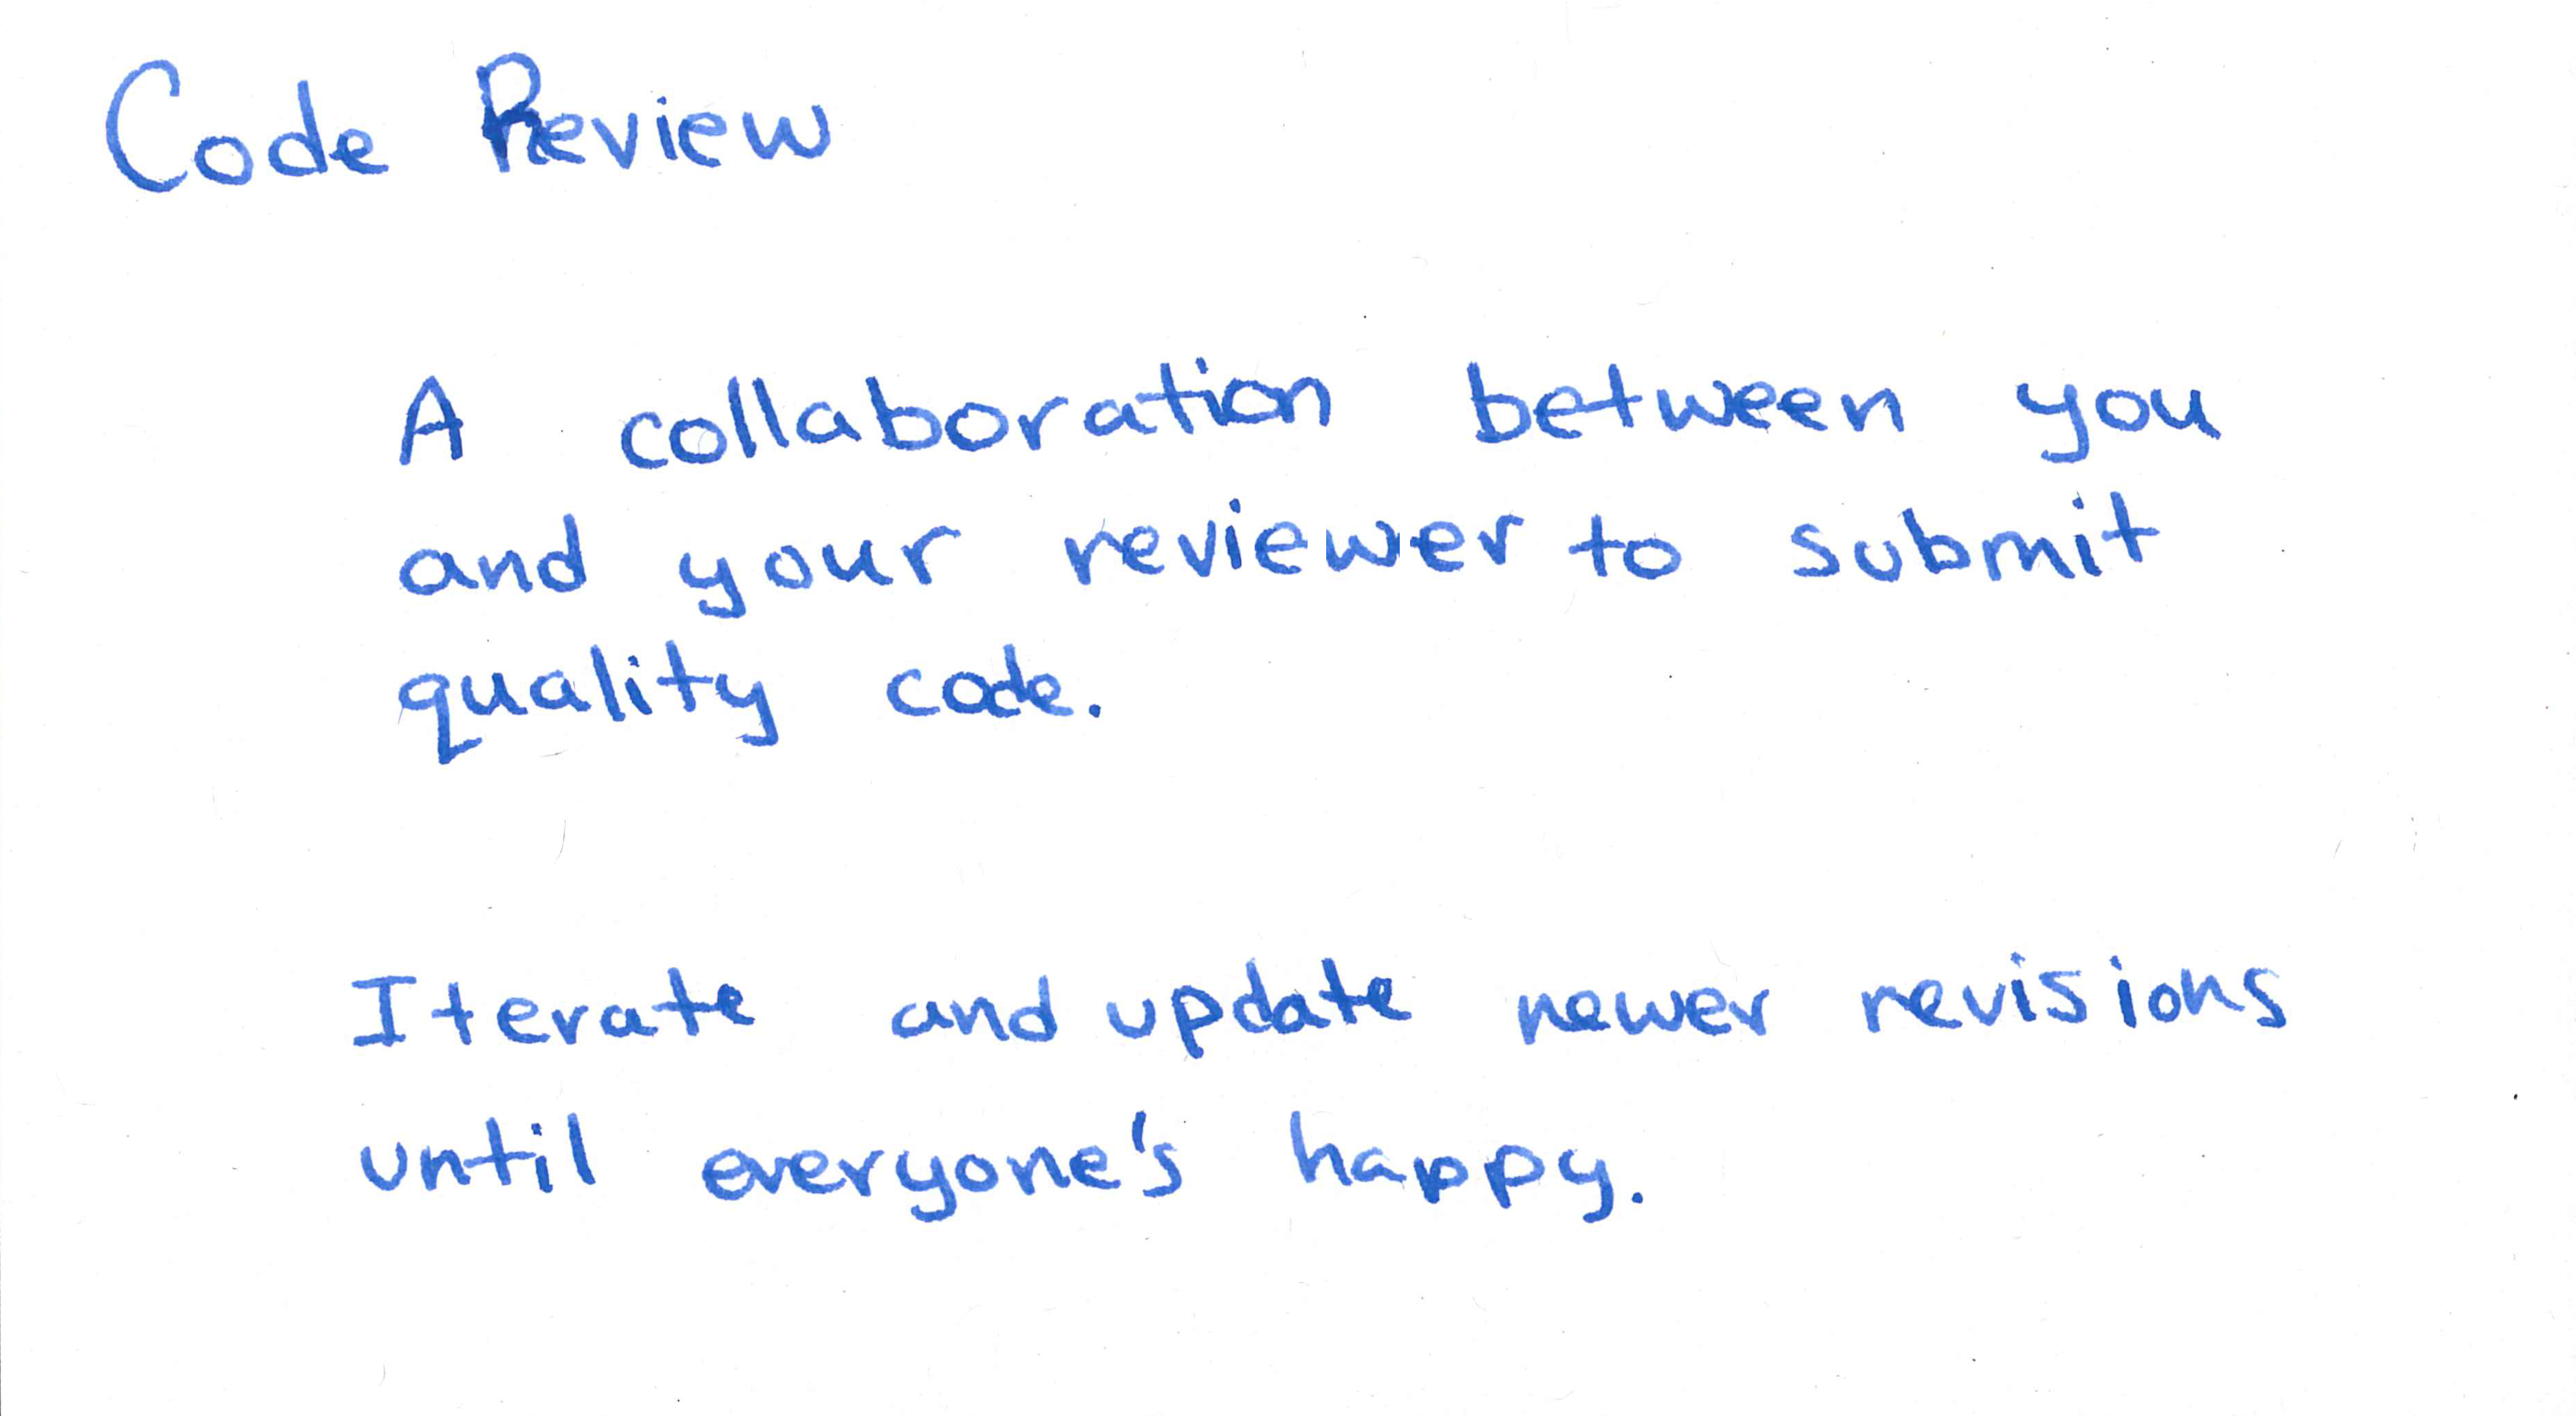 Code Review
A collaboration between you
and your reviewer to submit
quality code.
Iterate and update newer revisions
until everyone's happy.